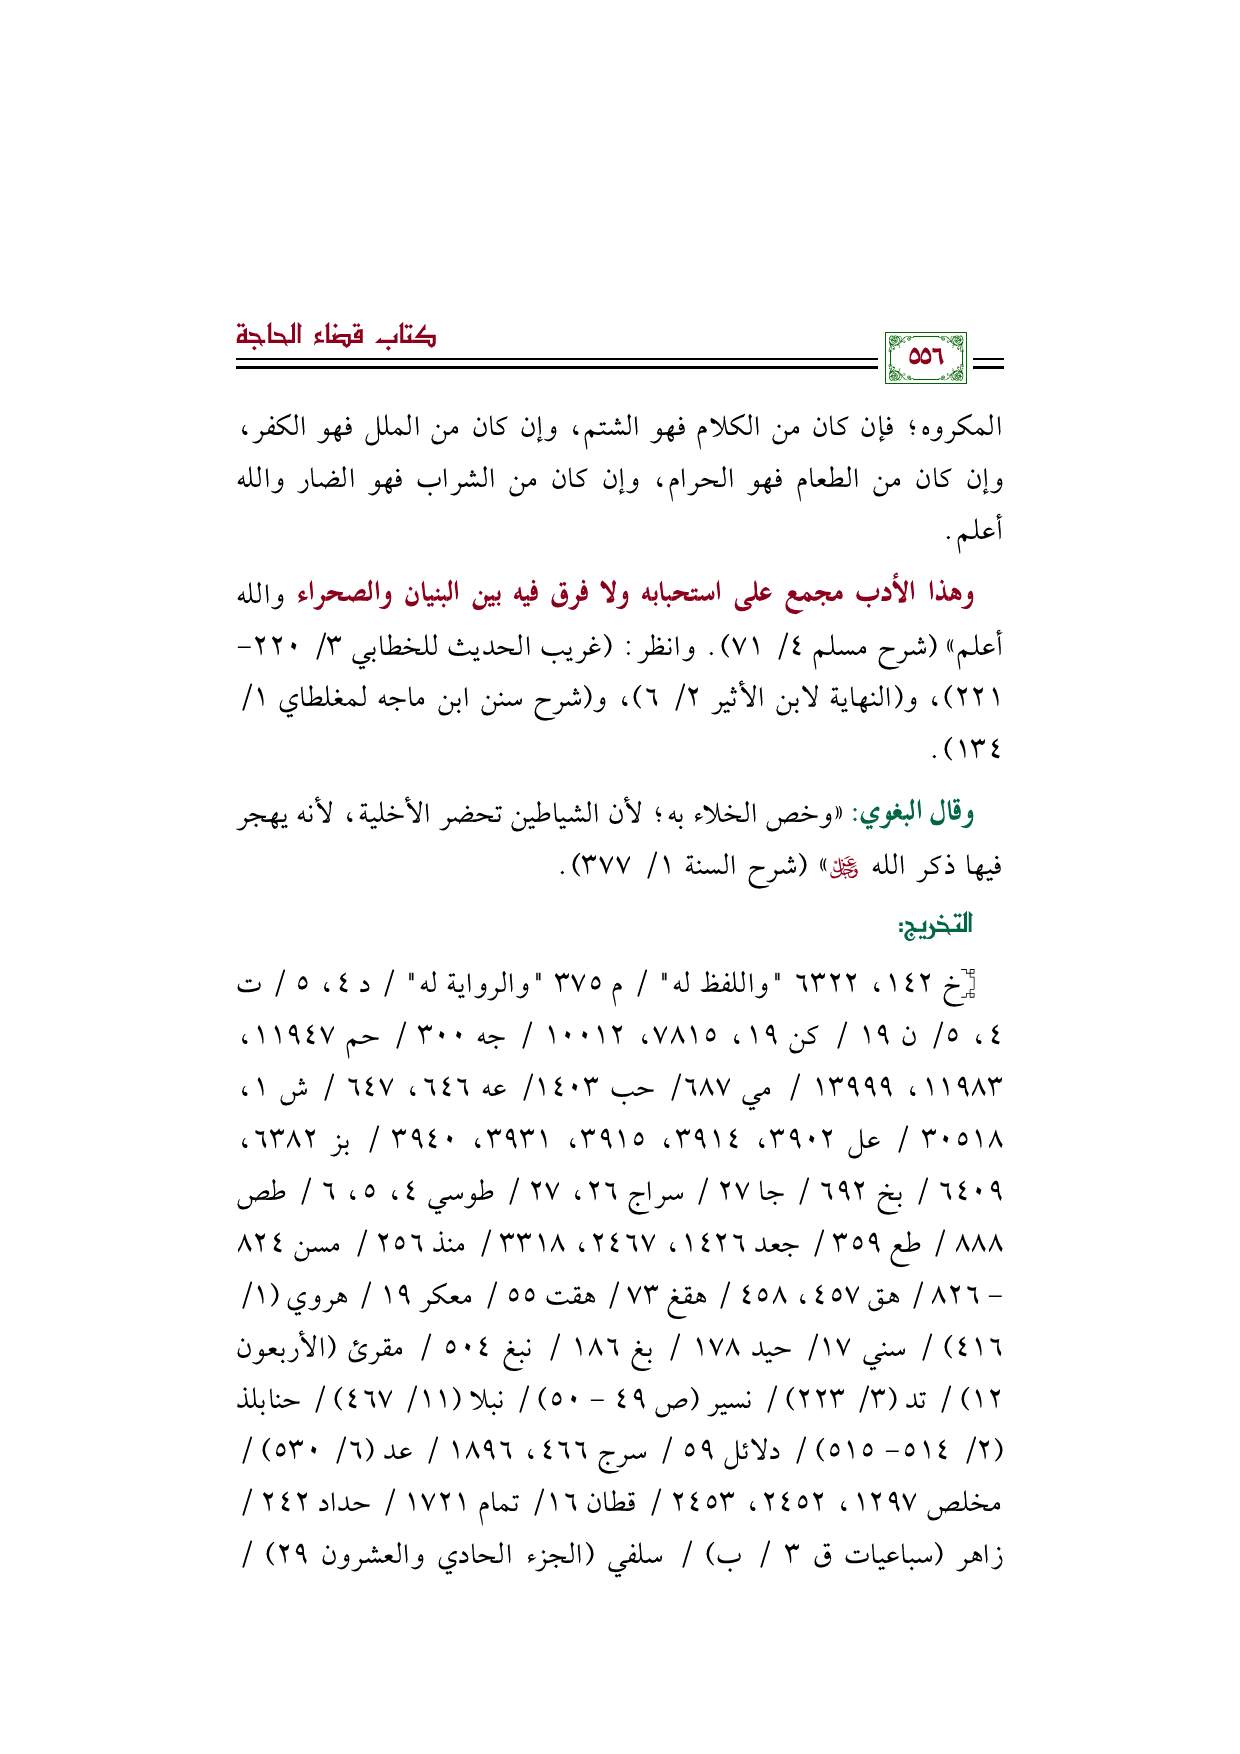 كتاب قضاء الحاجة
٥٥٦
المكروه؛ فإن كان من الكلام فهو الشتم، وإن كان من الملل فهو الكفر،
وإن كان من الطعام فهو الحرام، وإن كان من الشراب فهو الضار والله
أعلم.
وهذا الأدب مجمع على استحبابه ولا فرق فيه بين البنيان والصحراء والله
أعلم» (شرح مسلم ٤/ ٧١). وانظر: (غريب الحديث للخطابي ٣/ ٢٢٠-
٢٢١)، و(النهاية لابن الأثير ٢/ ٦)، و(شرح سنن ابن ماجه لمغلطاي ١/
١٣٤).
وقال البغوي: «وخص الخلاء به؛ لأن الشياطين تحضر الأخلية، لأنه يهجر
فيها ذكر الله عز وجل» (شرح السنة ١/ ٣٧٧).
التخريج:
[خ ١٤٢، ٦٣٢٢ "واللفظ له" / م ٣٧٥ "والرواية له" / د ٤، ٥ / ت
٤، ٥/ ن ١٩ / كن ١٩، ٧٨١٥، ١٠٠١٢ / جه ٣٠٠ / حم ١١٩٤٧،
١١٩٨٣، ١٣٩٩٩ / مي ٦٨٧/ حب ١٤٠٣/ عه ٦٤٦، ٦٤٧ / ش ١،
٣٠٥١٨ / عل ٣٩٠٢، ٣٩١٤، ٣٩١٥، ٣٩٣١، ٣٩٤٠ / بز ٦٣٨٢،
٦٤٠٩ / بخ ٦٩٢ / جا ٢٧ / سراج ٢٦، ٢٧ / طوسي ٤، ٥، ٦ / طص
٨٨٨ / طع ٣٥٩ / جعد ١٤٢٦، ٢٤٦٧، ٣٣١٨ / منذ ٢٥٦ / مسن ٨٢٤
- ٨٢٦ / هق ٤٥٧، ٤٥٨ / هقغ ٧٣ / هقت ٥٥ / معكر ١٩ / هروي (١/
٤١٦) / سني ١٧/ حيد ١٧٨ / بغ ١٨٦ / نبغ ٥٠٤ / مقرئ (الأربعون
١٢) / تد (٣/ ٢٢٣) / نسير (ص ٤٩ - ٥٠) / نبلا (١١/ ٤٦٧) / حنابلذ
(٢/ ٥١٤- ٥١٥) / دلائل ٥٩ / سرج ٤٦٦، ١٨٩٦ / عد (٦/ ٥٣٠) /
مخلص ١٢٩٧، ٢٤٥٢، ٢٤٥٣ / قطان ١٦/ تمام ١٧٢١ / حداد ٢٤٢ /
زاهر (سباعيات ق ٣ / ب) / سلفي (الجزء الحادي والعشرون ٢٩) /